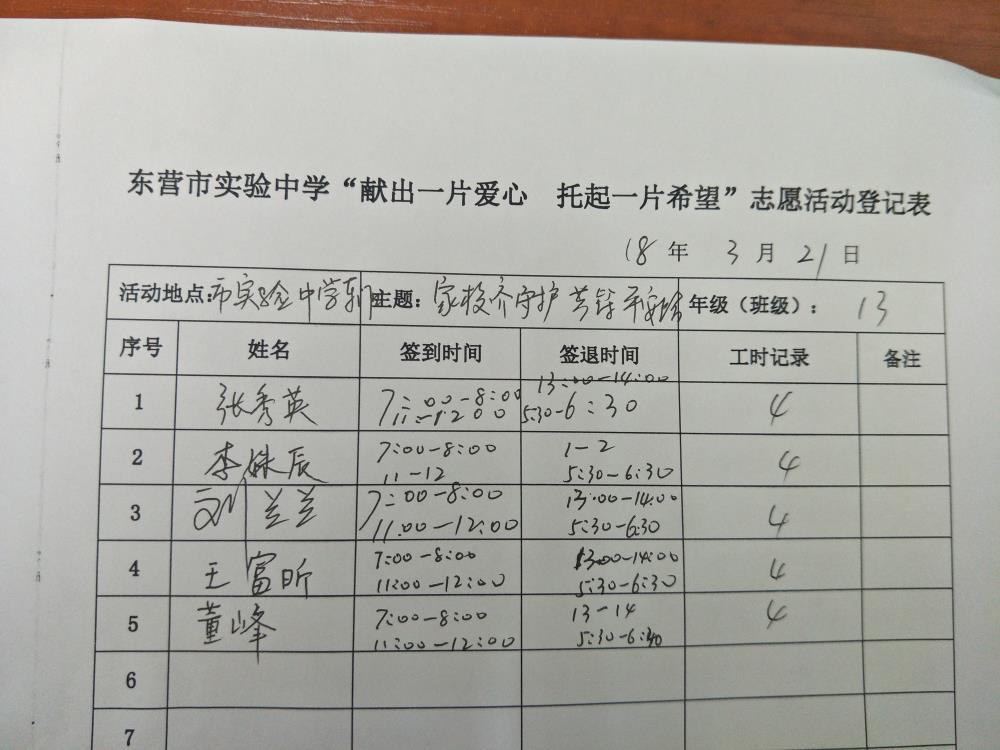 东营市实验中学“献出一片爱心 托起一片希望”志愿活动登记表
18年 3月 21日
活动地点:市实验中学东门 主题：家校齐守护 共铸平安 年级（班级）：13
序号 姓名 签到时间 签退时间 工时记录 备注
13:00-14:00
1 张秀英 7:00-8:00 5:30-6:30 4
11:-12:00
2 李姝辰 7:00-8:00 1-2 4
11-12 5:30-6:30
3 刘兰兰 7:00-8:00 13:00-14:00 4
11:00-12:00 5:30-6:30
4 王富昕 7:00-8:00 13:00-14:00 4
11:00-12:00 5:30-6:30
5 董峰 7:00-8:00 13-14 4
11:00-12:00 5:30-6:30
6
7